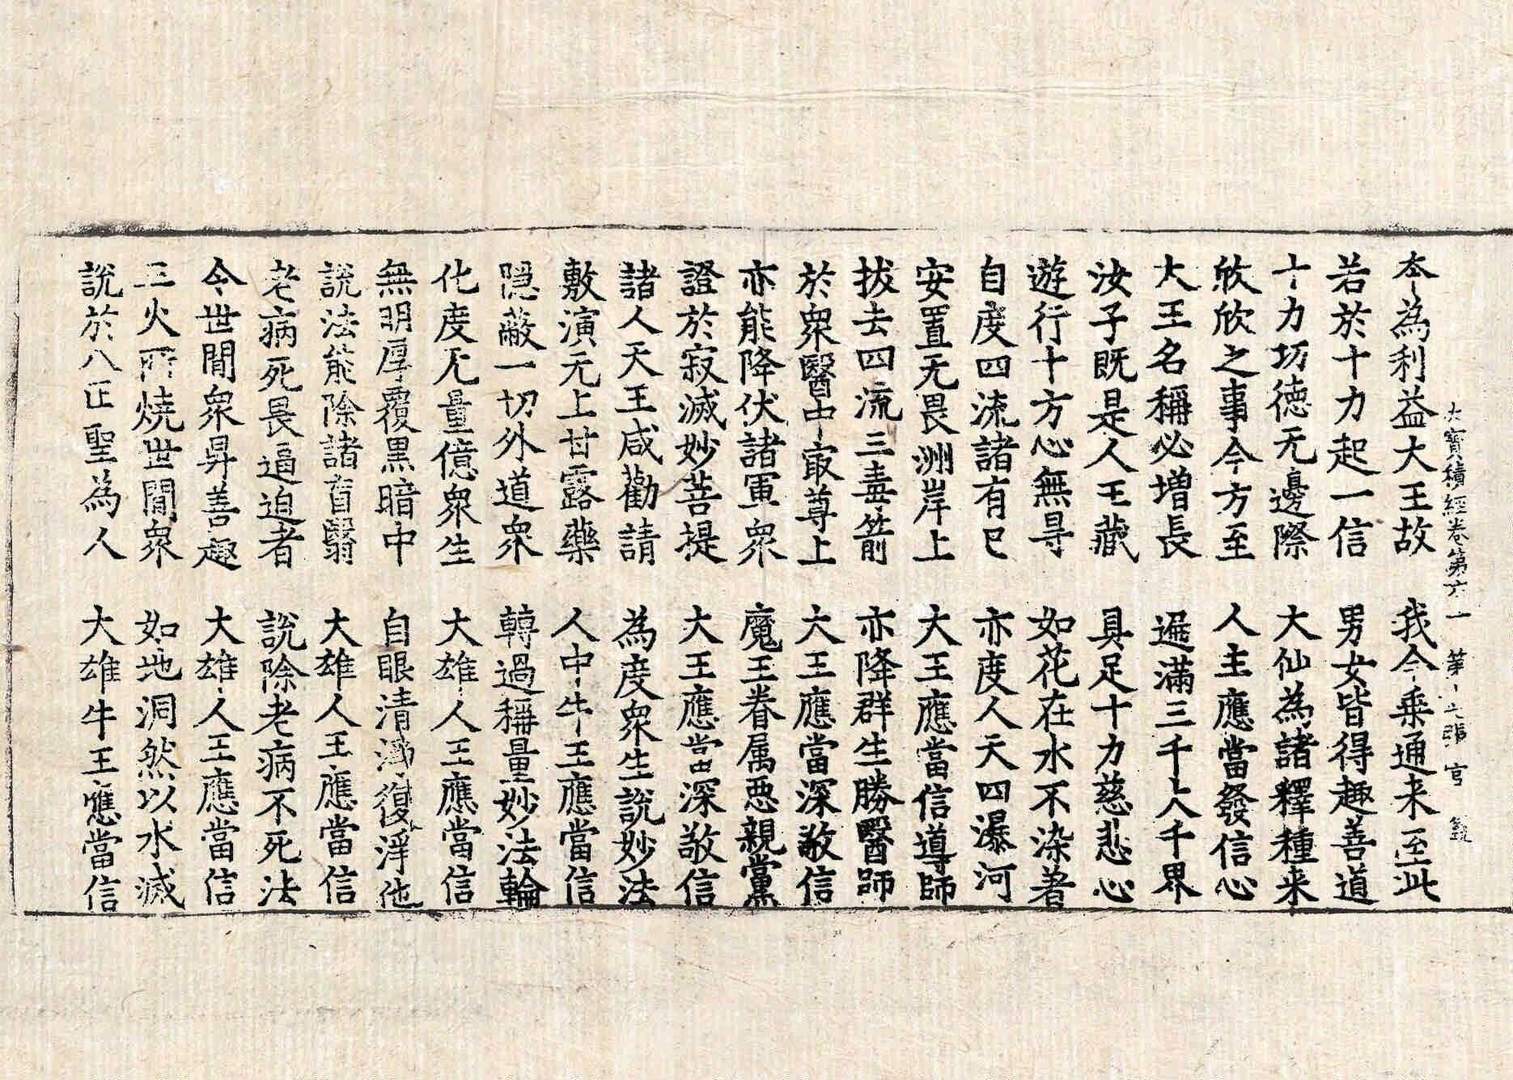 大寶積經卷第六一　第十七張　官
本為利益大王故　我今乘通来至此
若於十力起一信　男女皆得趣善道
十力功徳无邊際　大仙為諸釋種来
欣欣之事今方至　人主應當發信心
大王名稱必增長　遍滿三千大千界
汝子既是人王藏　具足十力慈悲心
遊行十方心無㝵　如花在水不染著
自度四流諸有已　亦度人天四瀑河
安置无畏洲岸上　大王應當信導師
拔去四流三毒箭　亦降群生勝醫師
於衆醫中㝡尊上　大王應當深敬信
亦能降伏諸軍衆　魔王眷属惡親黨
證於寂滅妙菩提　大王應當深敬信
諸人天王咸勸請　為度衆生説妙法
敷演无上甘露藥　人中牛王應當信
隱蔽一切外道衆　轉過稱量妙法輪
化度无量億衆生　大雄人王應當信
無明厚覆黒暗中　自眼清淨復淨他
説法能除諸盲翳　大雄人王應當信
老病死畏逼迫者　説除老病不死法
令世間衆昇善趣　大雄人王應當信
三火所燒世間衆　如地洞然以水滅
説於八正聖為人　大雄牛王應當信